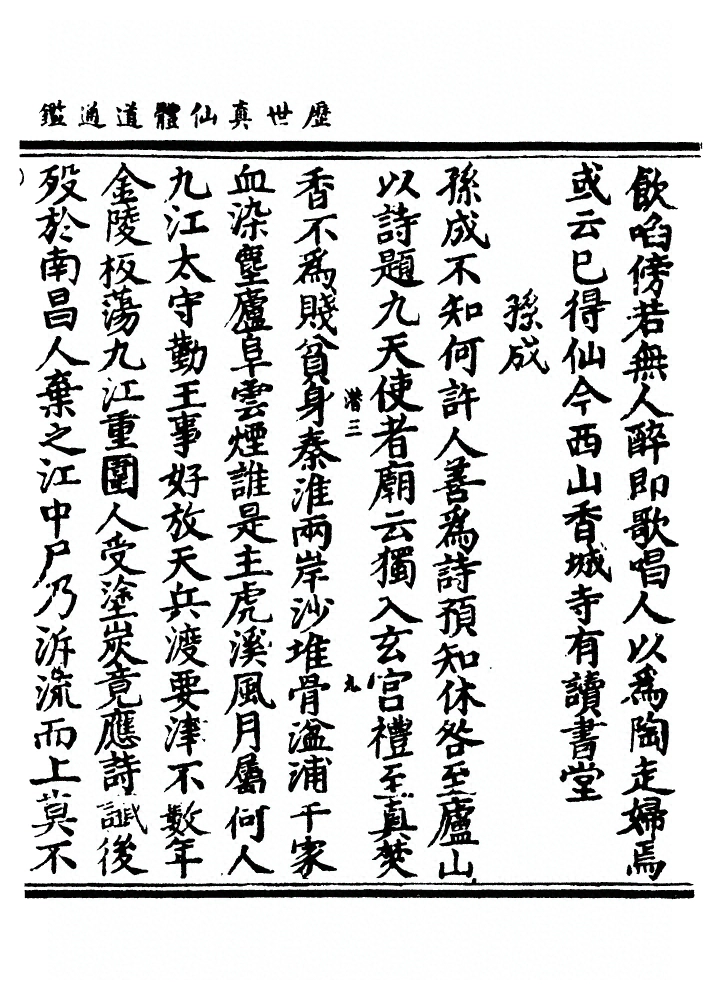 歷世真仙體道通鑑
飲啗傍若無人醉即歌唱人以為陶走婦焉
或云已得仙今西山香城寺有讀書堂
孫成
孫成不知何許人善為詩預知休咎至廬山
以詩題九天使者廟云獨入玄宮禮至真焚
潛三
九
香不為賤貧身秦淮兩岸沙堆骨湓浦千家
血染塵廬阜雲煙誰是主虎溪風月屬何人
九江太守勤王事好放天兵渡要津不數年
金陵板蕩九江重圍人受塗炭竟應詩讖後
歿於南昌人棄之江中尸乃泝流而上莫不